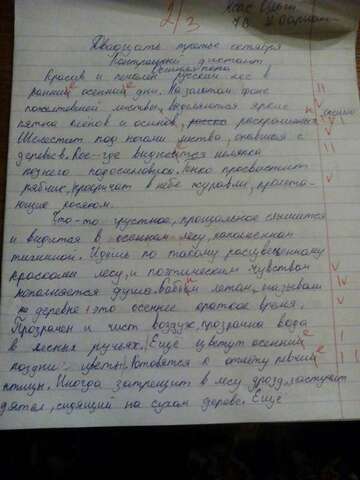 2/3
Двадцать третье сентября
Контрольный диктант
Осенняя пора
Красив и печален русский лес в
ранний осенний дни. На золотом фоне
пожелтевшей листвы, выделяются яркие
пятна клёнов и осинов,
Шелестит под ногами листва, опавшая с
деревьев. Кое-где виднеется шляпка
позднего подосиновика. Тонко просвистит
рябчик, прокричат в небе журавли, пролета-
ющие косяком.
Что-то грустное, прощальное слышится
и видится в осеннем лесу, наполненном
тишиной. Идёшь по такому расцвеченному
красками лесу, и поэтическим чувством
наполняется душа. бабьим летом, называли
в деревне это осеннее краткое время.
Прозрачен и чист воздух, прозрачна вода
в лесных ручьях. Ещё цветут осенний
поздние цветы. Готовятся к отлёту певчий
птицы. Иногда затрещит в лесу дрозд, застучит
дятел, сидящий на сухом дереве. Ещё